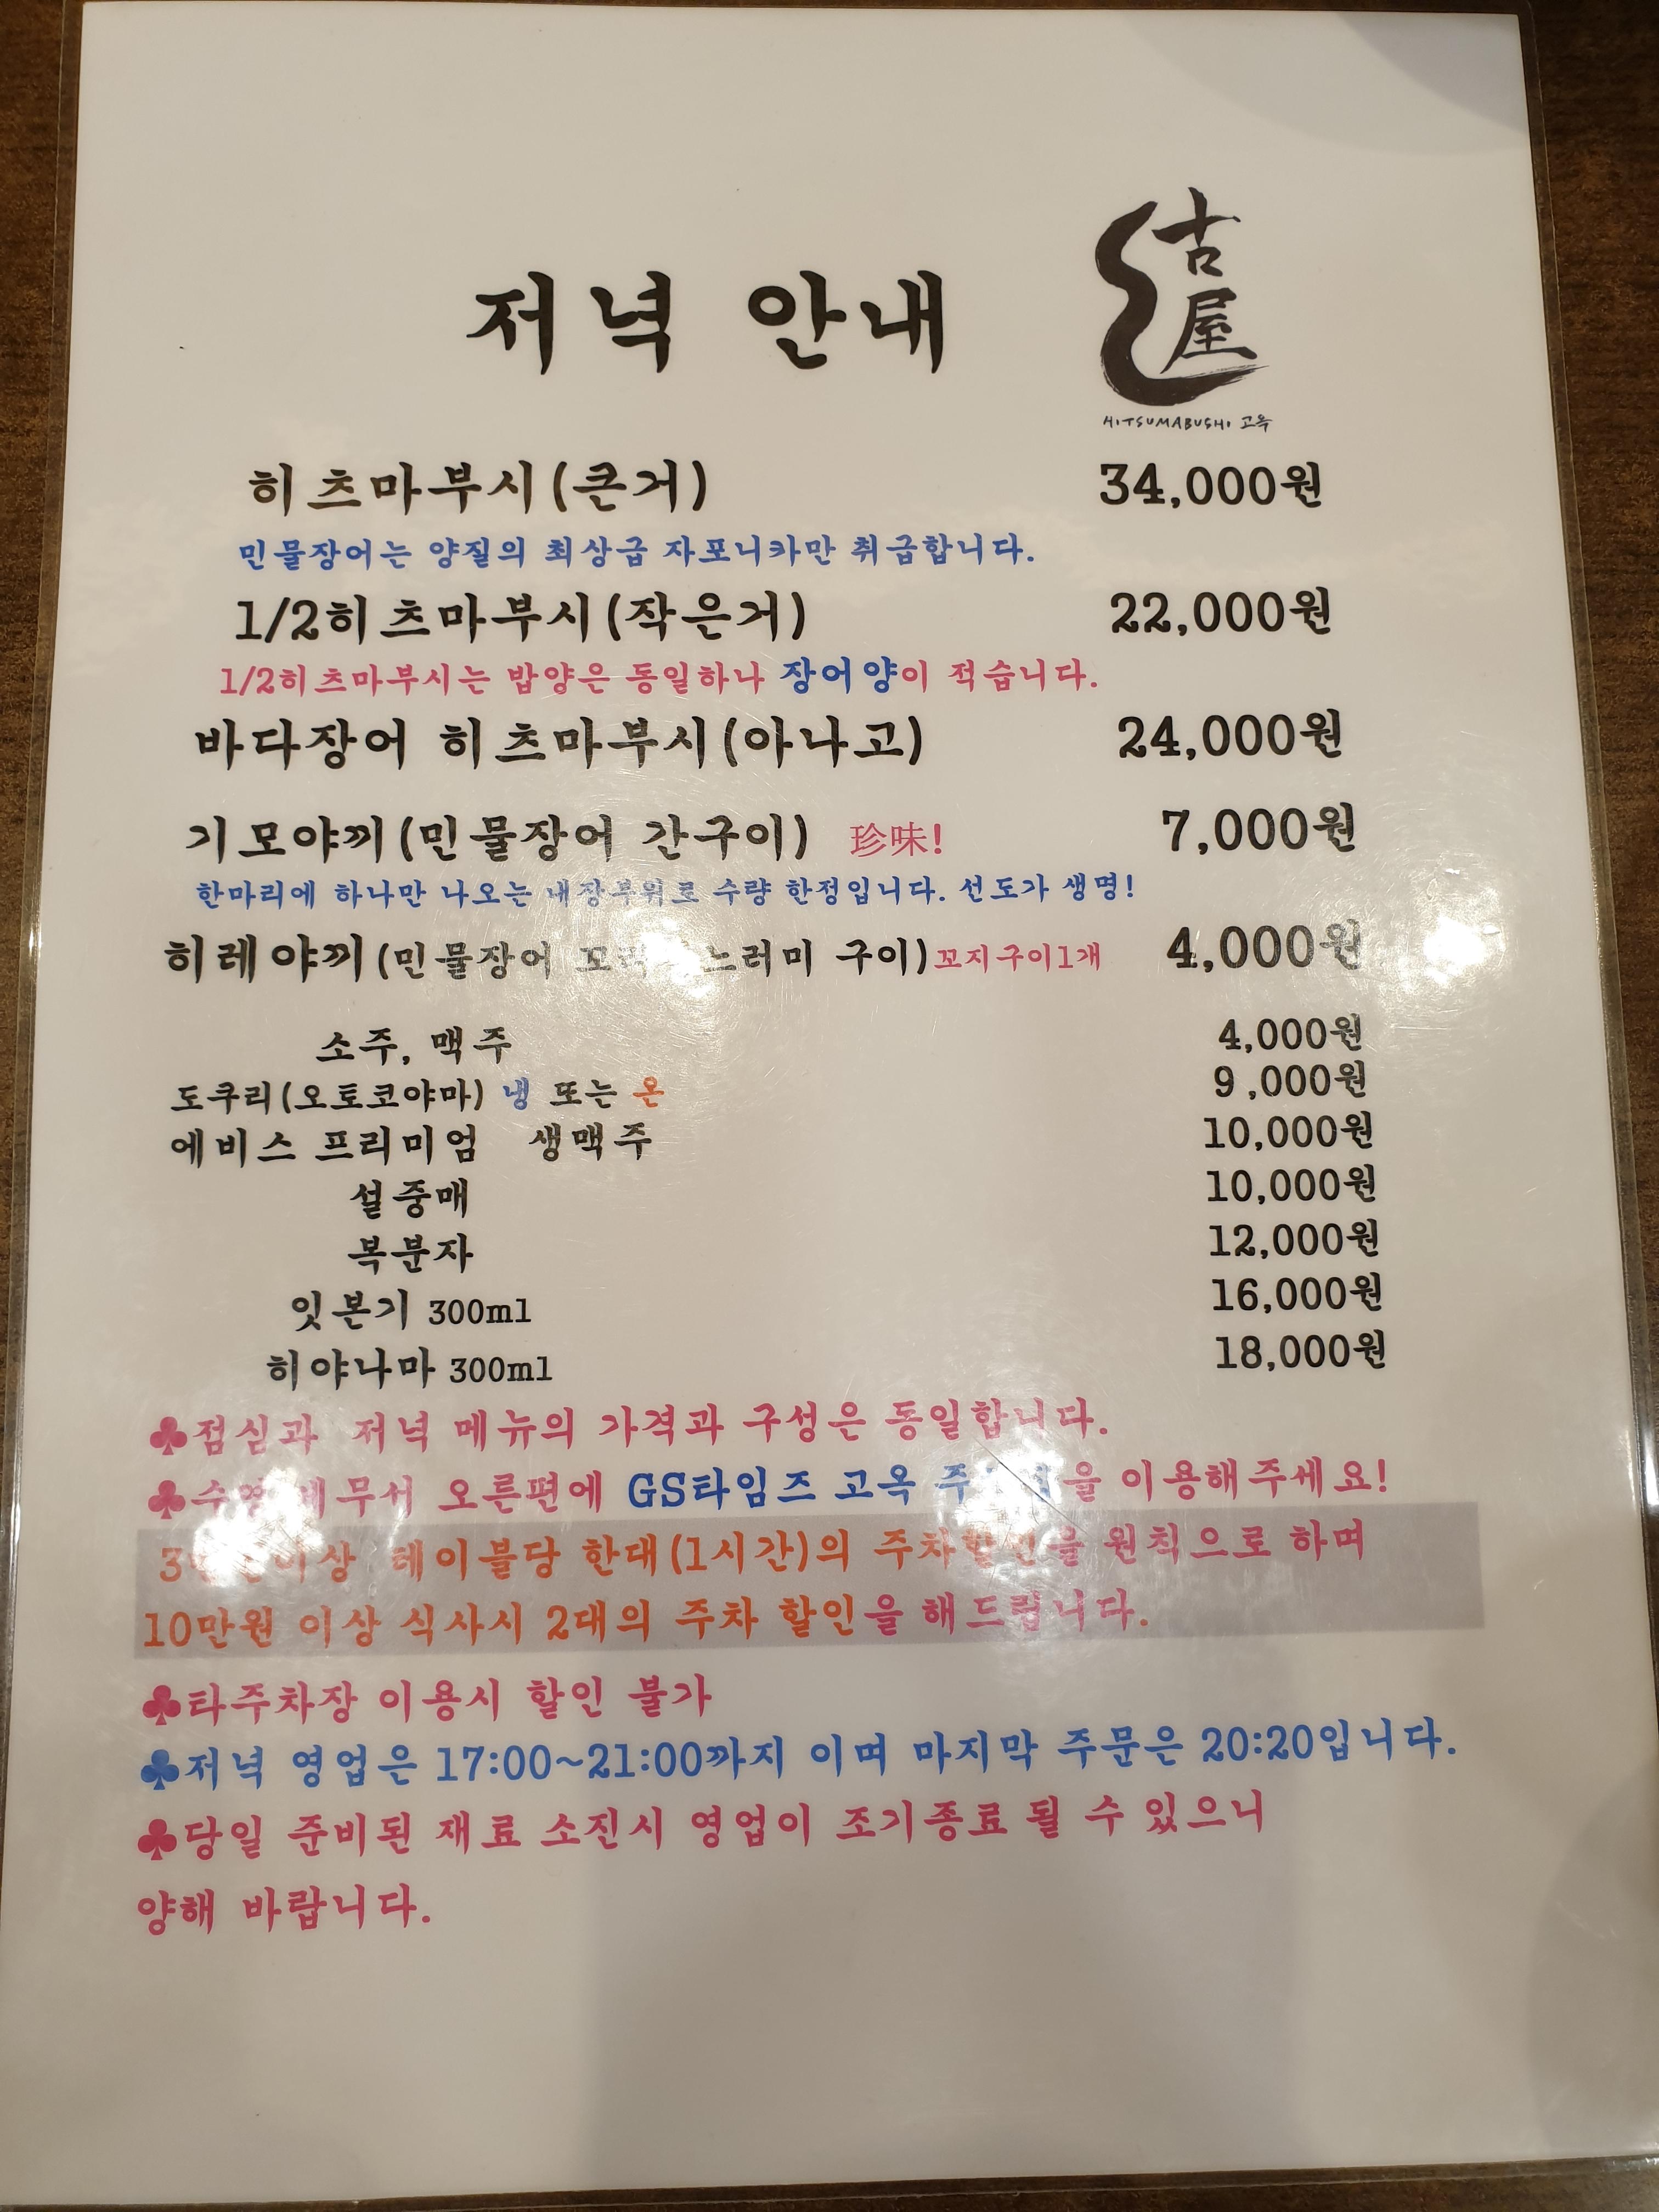 저녁 안내
古屋
HITSUMABUSHI 고옥
히츠마부시(큰거) 34,000원
민물장어는 양질의 최상급 자포니카만 취급합니다.
1/2히츠마부시(작은거) 22,000원
1/2히츠마부시는 밥양은 동일하나 장어양이 적습니다.
바다장어 히츠마부시(아나고) 24,000원
기모야끼(민물장어 간구이) 珍味! 7,000원
한마리에 하나만 나오는 내장부위로 수량 한정입니다. 선도가 생명!
히레야끼(민물장어 느러미 구이)꼬지구이1개 4,000원
소주, 맥주 4,000원
도쿠리(오토코야마) 냉 또는 온 9,000원
에비스 프리미엄 생맥주 10,000원
설중매 10,000원
복분자 12,000원
잇본기 300ml 16,000원
히야나마 300ml 18,000원
♣점심과 저녁 메뉴의 가격과 구성은 동일합니다.
♣ 오른편에 GS타임즈 고옥 을 이용해주세요!
테이블당 한대(1시간)의 주차할인을 원칙으로 하며
10만원 이상 식사시 2대의 주차 할인을 해드립니다.
♣타주차장 이용시 할인 불가
♣저녁 영업은 17:00~21:00까지 이며 마지막 주문은 20:20입니다.
♣당일 준비된 재료 소진시 영업이 조기종료 될 수 있으니
양해 바랍니다.